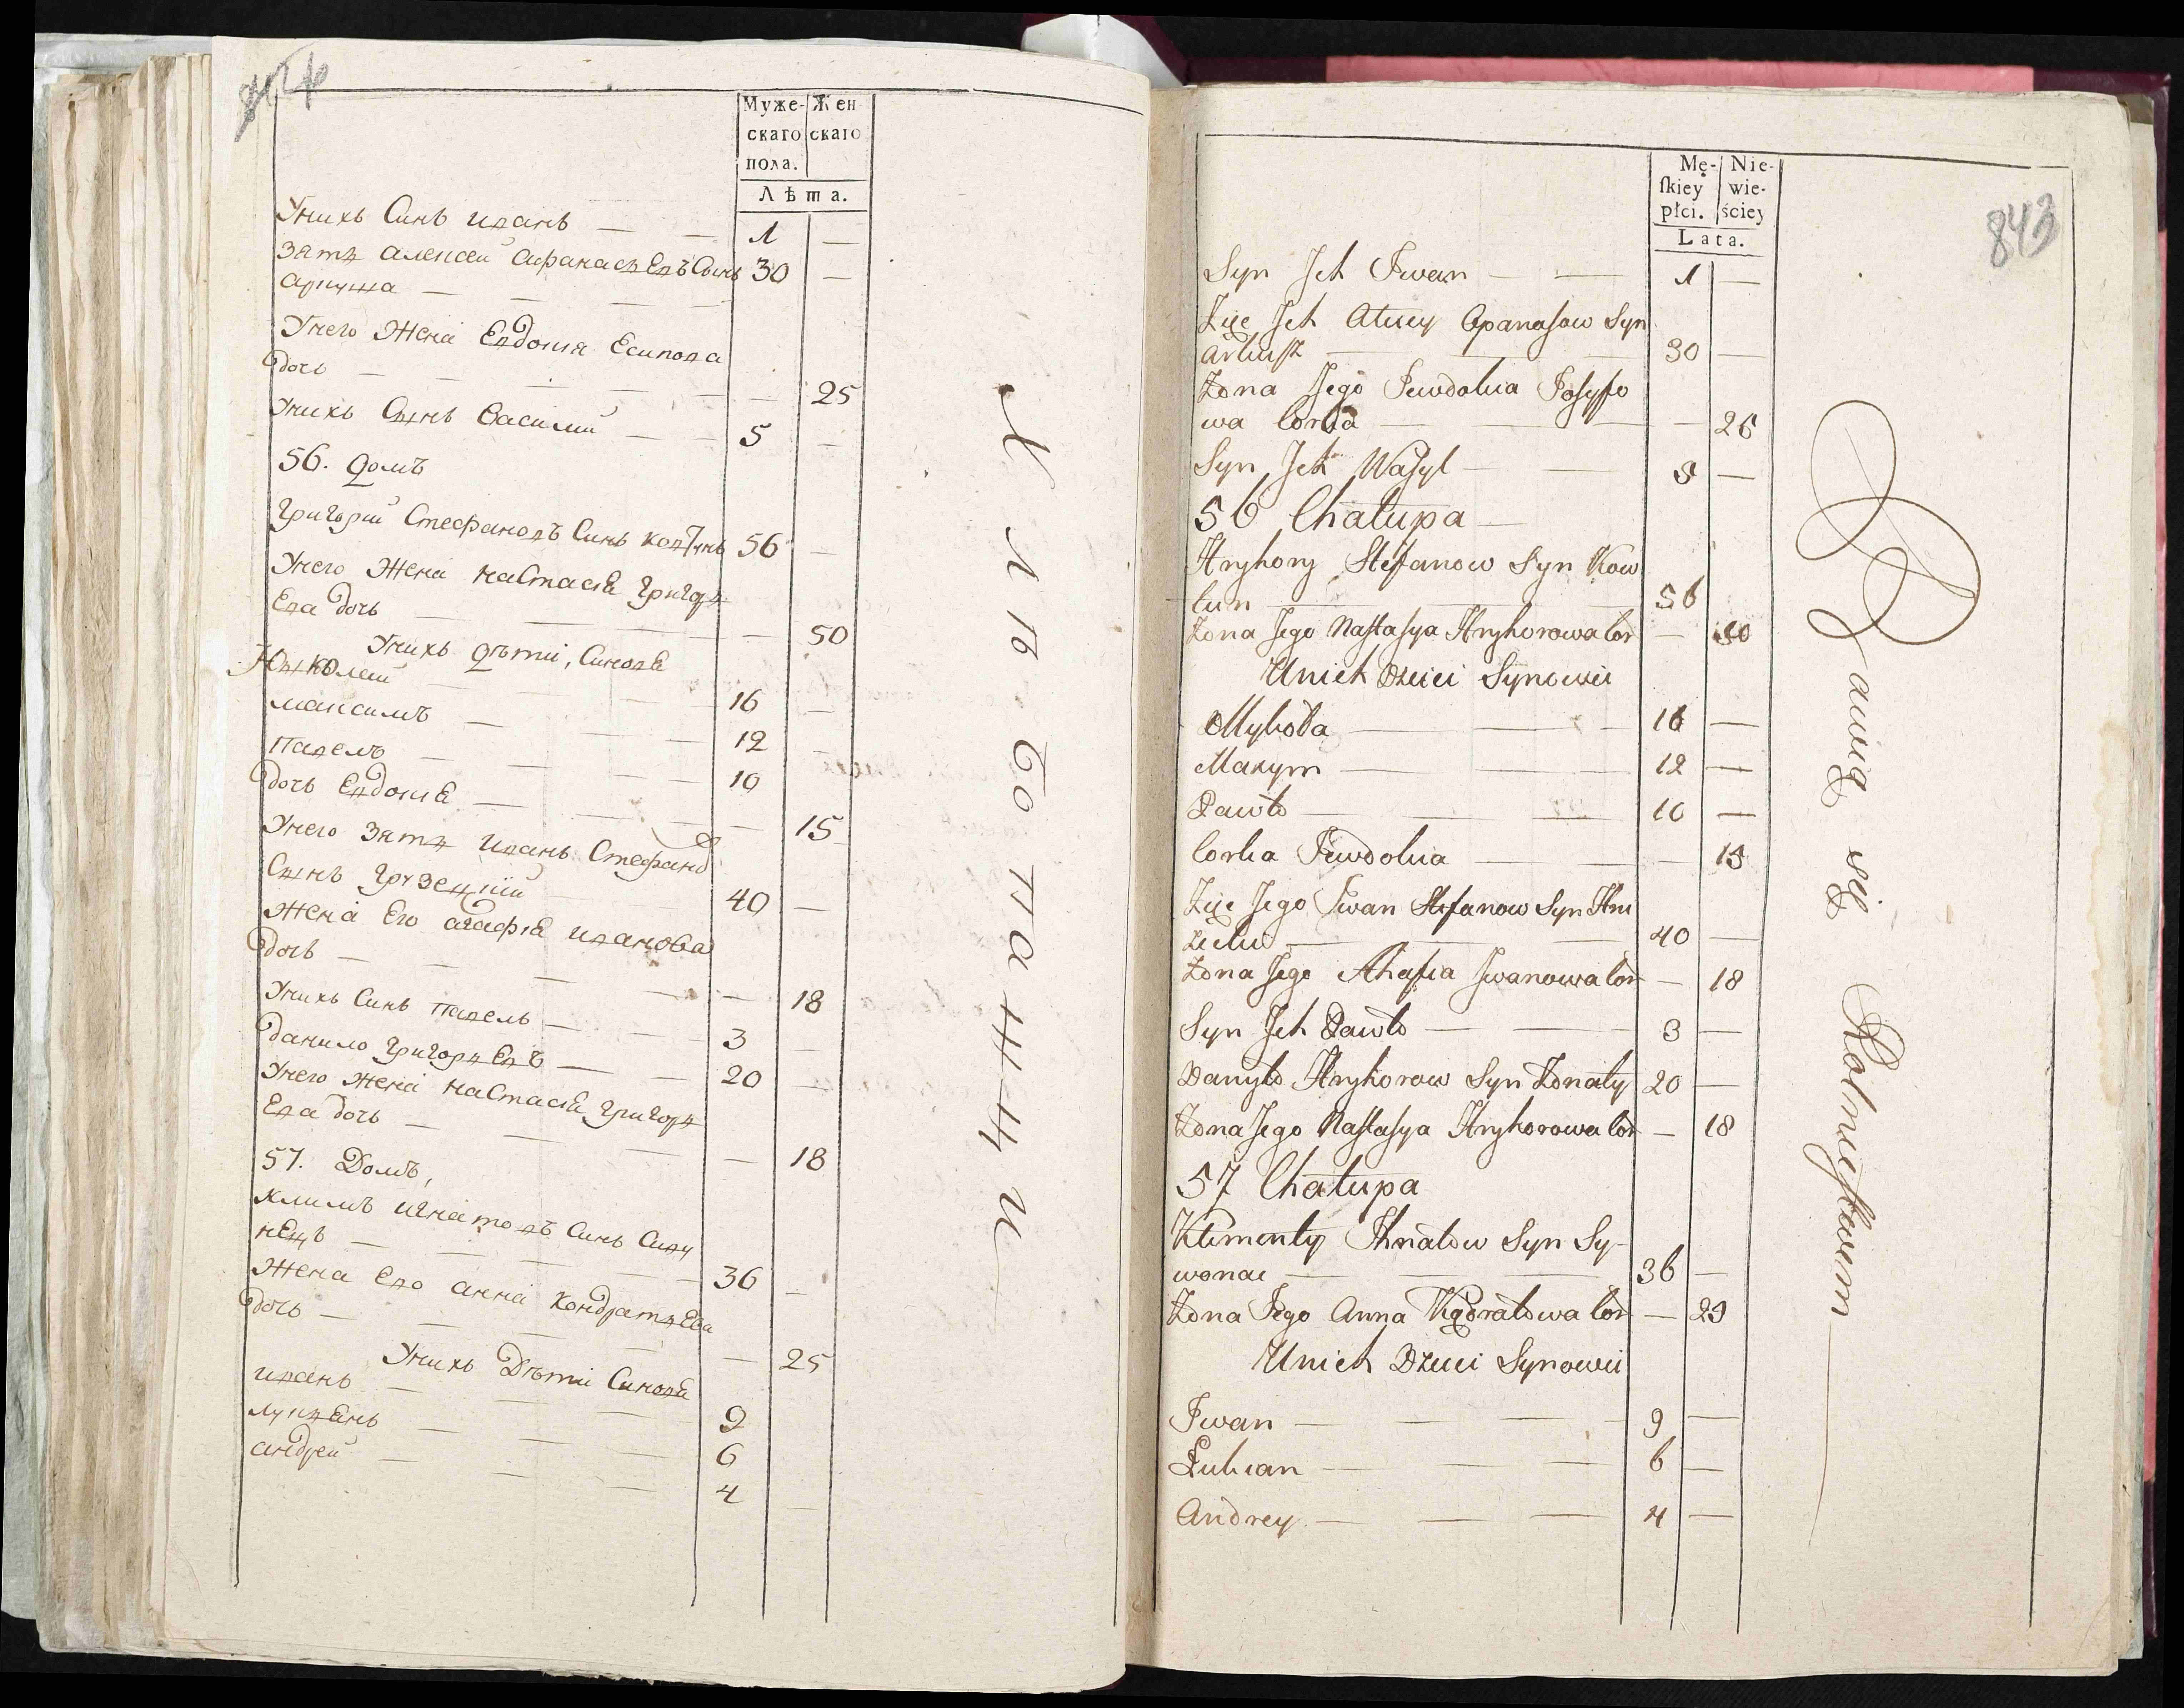 Муже-
скаго
пола.
Жен
скаго
Лѣта.
Унихъ Синъ иванъ — — 1 —
Зять алексей афанасьевъ Сынъ 30 —
аркуша — — — —
Унего жена Евдокия Есипова
дочь — — — — — 25
Унихъ Сынъ Василий — — 5 —
56. домъ
Григорий Стефановъ Синъ ковтунъ 56 —
Унего жена настасия григорь
Ева дочь — — — — — 50
Унихъ дѣти, Синове
Николай — — — 16 —
максимъ — — — 12 —
павелъ — — — 10
дочь Евдокия — — — — 15
Унего Зять иванъ Стефано
Сынъ грузецкий 40 —
жена Его агафия иванова
дочь — — — — — 18
Унихъ Синъ павелъ — — 3 —
данило григорьевъ — — 20 —
Унего жена настасия григорь
Ева дочь — — — — 18
57. Домъ,
климъ игнатовъ Синъ Сиву
нецъ — — — 36 —
жена Его анна кондратьева
дочь — — — — — 25
Унихъ Дѣти Синове
иванъ — — — 9
лукьянъ — — — 6
андрей — — — 4 —
Хлѣбопашци
843
Mę-
skiey
płci.
Nie-
wie-
ściey
Lata.
Syn Jch Jwan — — 1 —
Zięc Jch Alexey Opanasow Syn
Arkusz — — — 30 —
Żona Jego Jewdokia Josyfo
wa Corka — — — — 26
Syn Jch Wasyl — — 5 —
56 Chałupa —
Hryhory Stefanow Syn Kow
tun — — 56
Żona Jego Nastasya Hryhorowa Cor — 50
Unich Dzieci Synowie
Mykoła — — — 16 —
Maxym — — — 12 —
Pawło — — — 10 —
Corka Jewdokia — — — 15
Zięc Jego Jwan Stefanow Syn Hru
zecki — — 40 —
Żona Jego Ahafia Jwanowa Cor — 18
Syn Jch Pawło — — 3 —
Danyło Hryhorow Syn Żonaty 20 —
Żona Jego Nastasya Hryhorowa Cor — 18
57 Chałupa
Klimenty Jhnatow Syn Sy-
wonac — — — 36 —
Żona Jego Anna Kądratowa Cor — 29
Unich Dzieci Synowie
Jwan — — — 9 —
Łukian — — — 6 —
Andrey — — — 4 —
Bawią się Rolnictwem